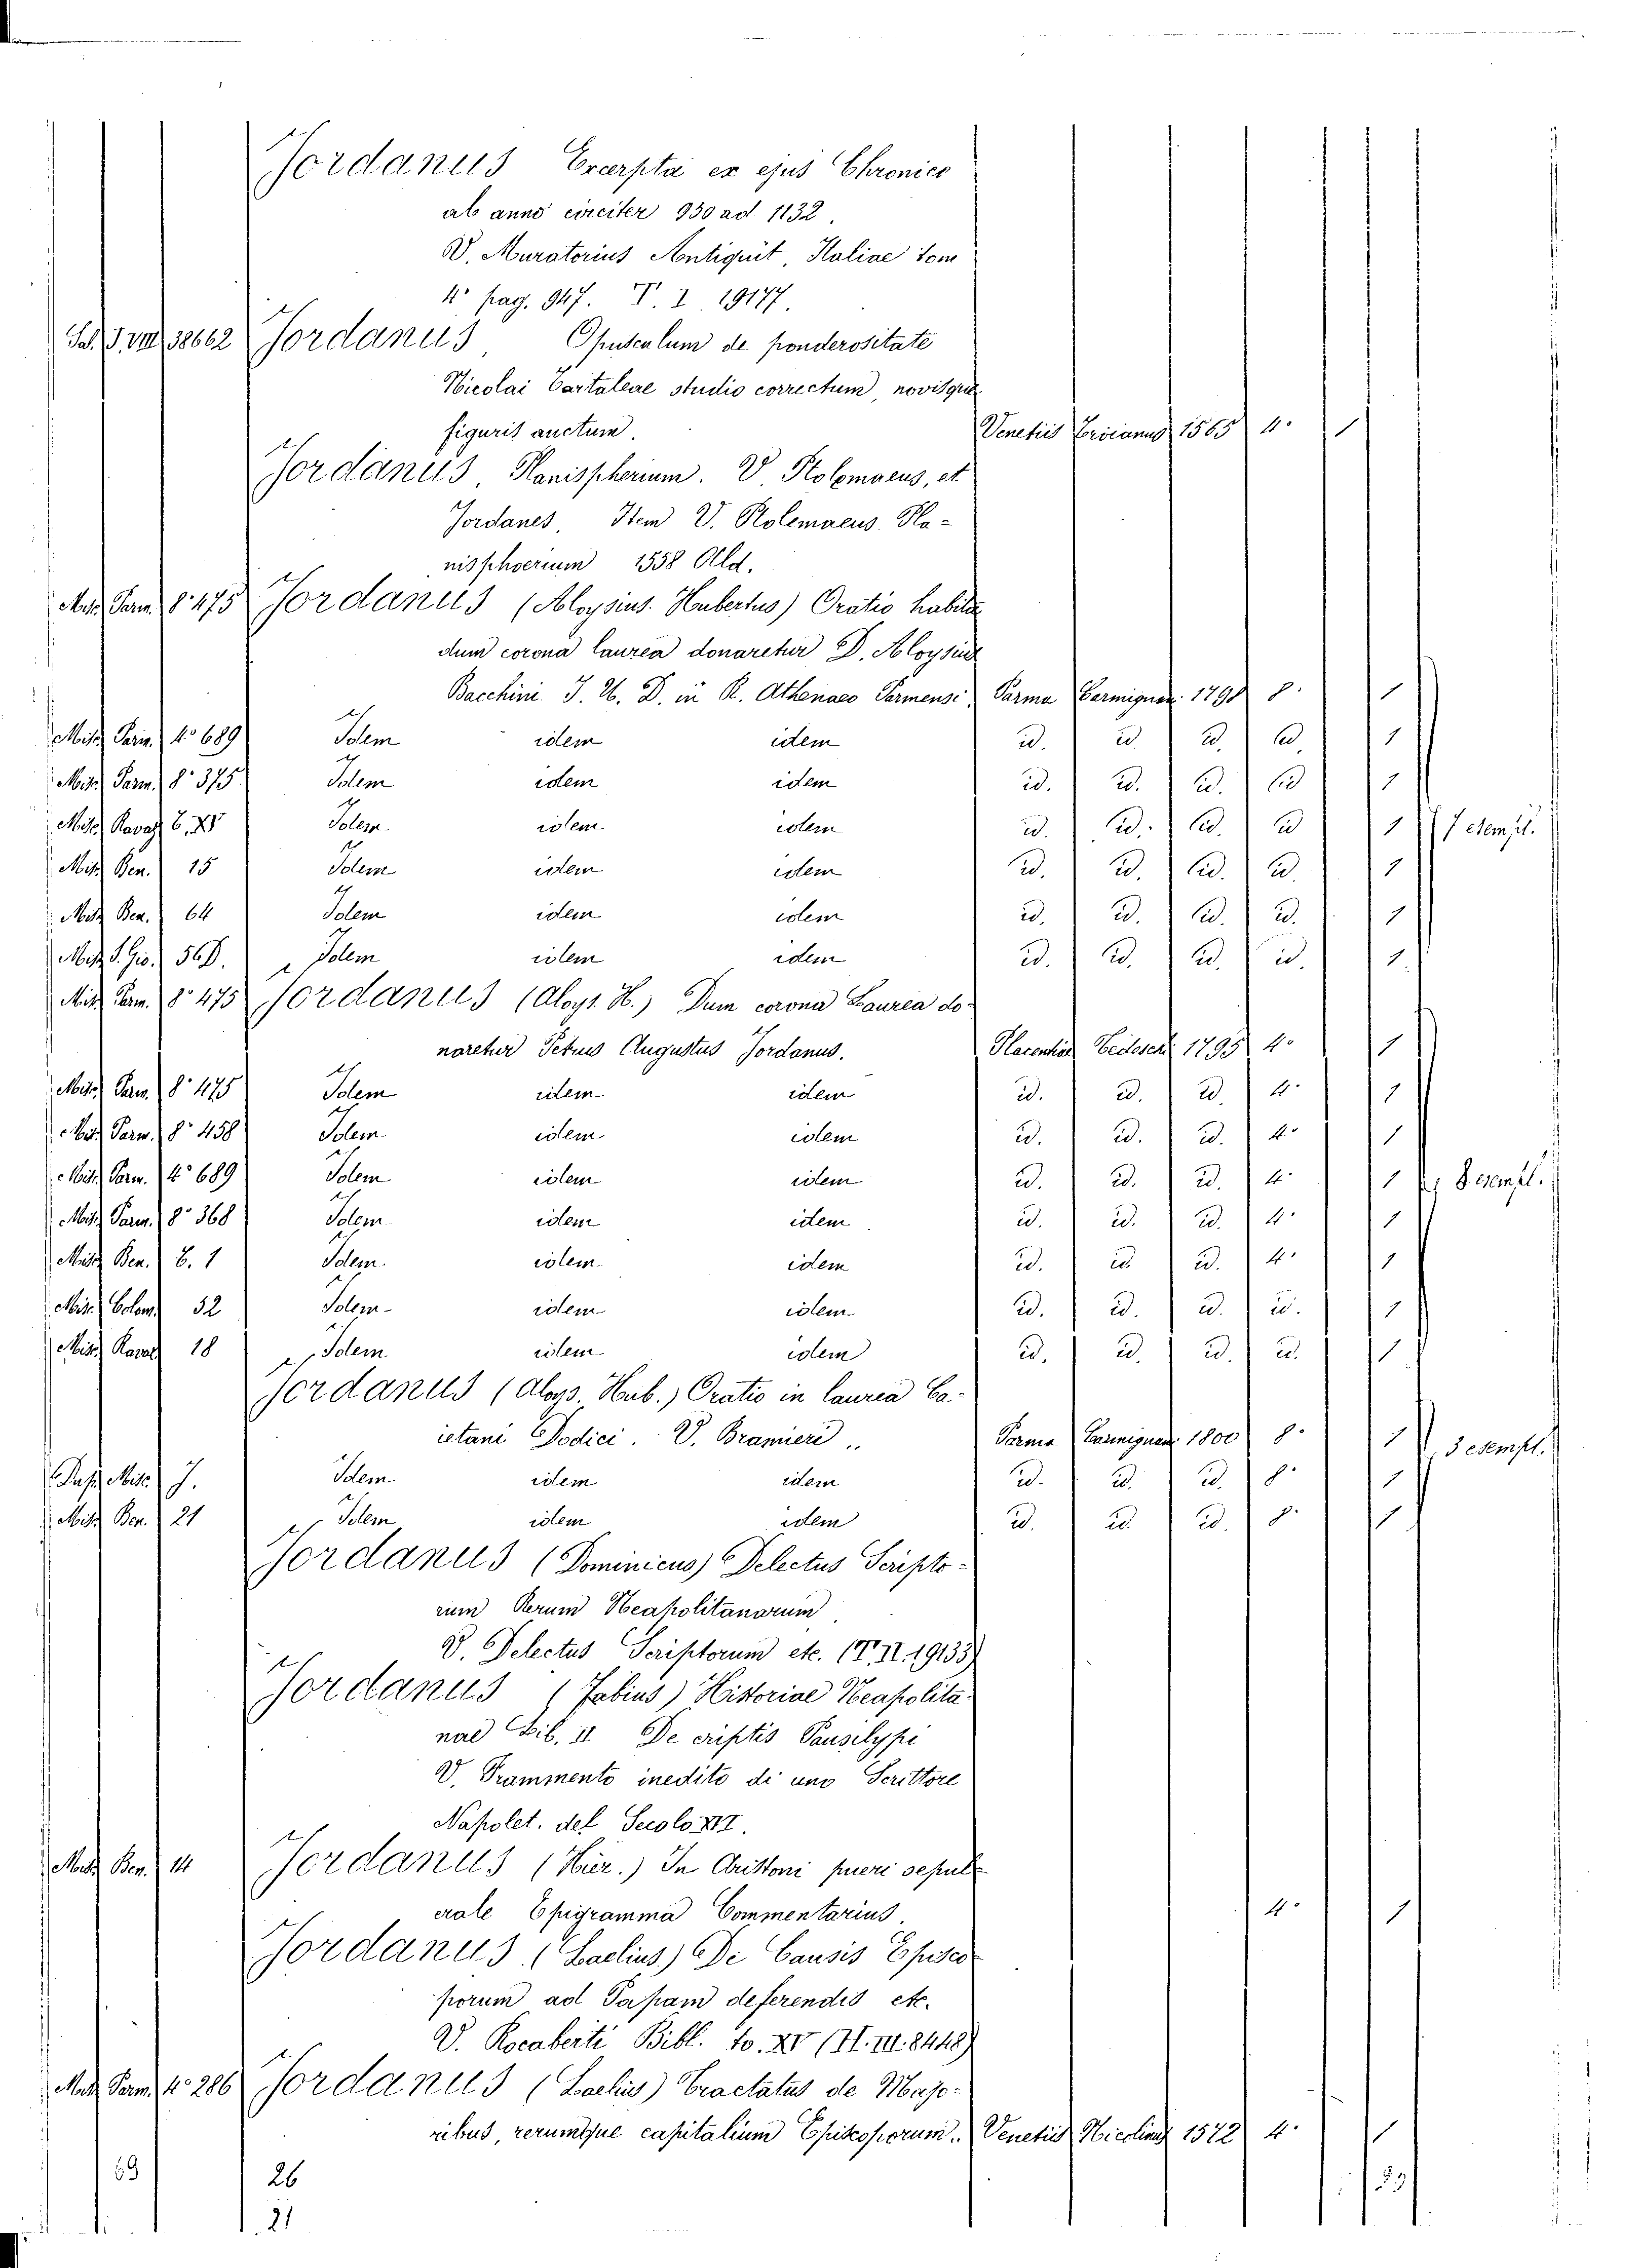 Jordanus Excerpta ex ejus Chronico
ab anno circiter 950 ad 1132.
V. Muratorius Antiquit. Italiae tom
4° pag. 947. T. I 19177.
Sal. J. VIII 38662 Jordanus Opusculum de ponderositate
Nicolai Tartaleae studio correctum, novisque
figuris auctum. Venetiis Troianus 1565 4° 1
Jordanus Planispherium. V. Ptolomaeus, et
Jordanes. Item V. Ptolemaeus Pla-
nisphoerium 1558 Ald.
Misc. Parm. 8° 475 Jordanus (Aloysius Hubertus) Oratio habita
dum corona laurea donaretur D. Aloysius
Bacchini J. U. D. in R. Athenaeo Parmensi. Parma Carmignan. 1798 8° 1
Misc. Parm. 4° 689 Idem idem idem id. id. id. id. 1
Misc. Parm. 8° 375 Idem idem idem id. id. id. id 1
Misc. Ravaz. 6. XV Idem idem idem id. id. id. id 1 7 esempl.
Misc. Ben. 15 Idem idem idem id. id. id. id. 1
Misc. Ben. 64 Idem idem idem id. id. id. id. 1
Misc. S. Gio. 56 Idem idem idem id. id. id. id. 1
Misc. Parm. 8° 475 Jordanus (Aloys. H.) Dum corona Laurea do-
naretur Petrus Augustus Jordanus. Placentiae Tedeschi 1795 4° 1
Misc. Parm. 8° 475 Idem idem idem id. id. id. 4° 1
Misc. Parm. 8° 458 Idem idem idem id. id. id. 4° 1
Misc. Parm. 4° 689 Idem idem idem id. id. id. 4° 1 8 esempl.
Misc. Parm. 8° 368 Idem idem idem id. id. id. 4° 1
Misc. Ben. 6. 1 Idem idem idem id. id. id. 4° 1
Misc. Colom. 52 Idem idem idem id. id. id. id. 1
Misc. Ravaz. 18 Idem idem idem id. id. id. id. 1
Jordanus (Aloys. Hub.) Oratio in laurea Ca-
ietani Dodici. V. Bramieri Parma Carmignan. 1800 8° 1 3 esempl.
Misc. J. Idem idem idem id. id. id. 8° 1
Misc. Ben. 21 Idem idem idem id. id. id. 8° 1
Jordanus (Dominicus) Delectus Scripto-
rum Rerum Neapolitanorum
V. Delectus Scriptorum etc. (T. II. 19133)
Jordanus (Fabius) Historiae Neapolita-
nae Lib. II De criptis Pausilypi
V. Frammento inedito di uno Scrittore
Napolet. del Secolo XVI.
Misc. Ben. 14 Jordanus (Hier.) In Aristoni pueri sepul-
crale Epigramma Commentarius. 4° 1
Jordanus (Laelius) De Causis Episco-
porum ad Papam deferendis etc.
V. Rocaberti Bibl. to. XV (H. III. 8448)
Misc. Parm. 4° 286 Jordanus (Laelius) Tractatus de Majo-
ribus, rerumque capitalium Episcoporum. Venetiis Nicolinus 1572 4° 1
69 26
21